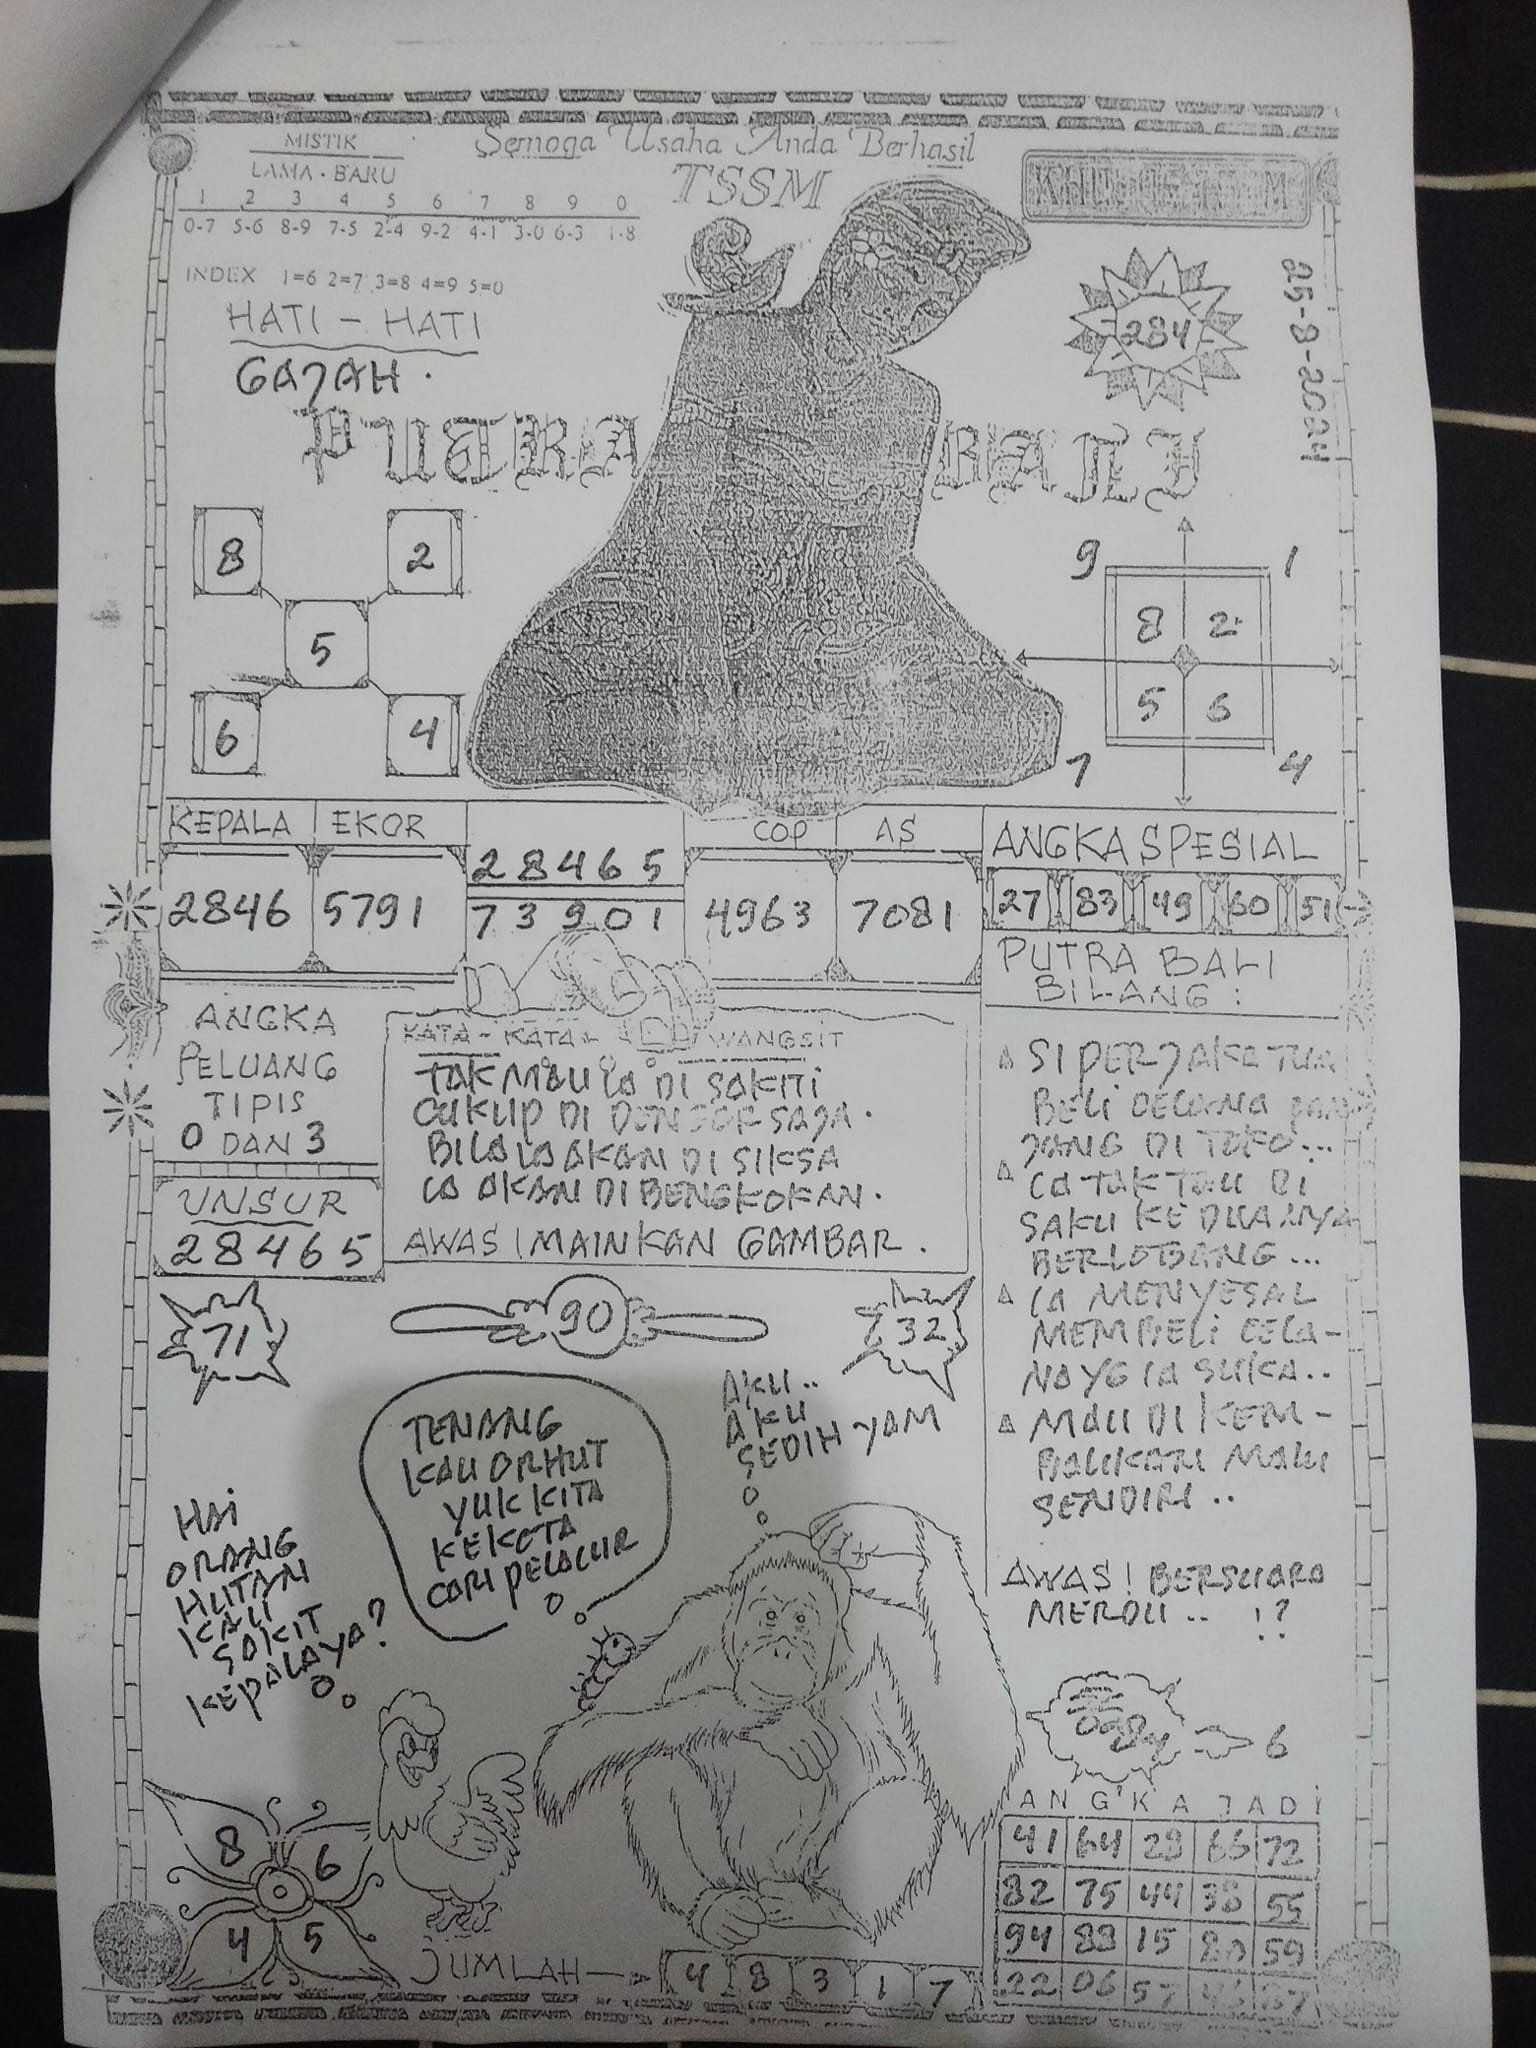 MISTIK
LAMA · BARU
1 2 3 4 5 6 7 8 9 0
0-7 5-6 8-9 7-5 2-4 9-2 4-1 3-0 6-3 1-8
INDEX 1=6 2=7 3=8 4=9 5=0
Semoga Usaha Anda Berhasil
TSSM
HATI - HATI
GAJAH.
284
25-8-2024
PUTRA BALI
8 2
5
6 4
9 1
8 2
5 6
7 4
KEPALA EKOR
2846 5791
28465
73901
COP AS
4963 7081
ANGKA SPESIAL
27 83 49 60 51
ANGKA
PELUANG
TIPIS
0 DAN 3
UNSUR
28465
KATA - KATA WANGSIT
TAK MAU IA DI SAKITI
CUKUP DI DENGAR SAJA.
BILA IA AKAN DI SIKSA
IA AKAN DI BENGKOKAN.
AWAS ! MAINKAN GAMBAR.
PUTRA BALI
BILANG :
SI PERJAKA TUA
BELI CELANA PAN
JANG DI TOKO...
IA TAK TAU DI
SAKU KEDUANYA
BERLOBANG...
IA MENYESAL
MEMBELI CELA-
NA YG IA SUKA..
MAU DI KEM-
BALIKAN MALU
SENDIRI..
AWAS! BERSUARA
MERDU.. !?
71
90
32
HAI
ORANG
HUTAN
KAU
SAKIT
KEPALA YA?
TENANG
KAU ORHUT
YUK KITA
KE KOTA
CARI PELACUR
AKU..
AKU
SEDIH YAM
6
8 6
4 5
JUMLAH
4 8 3 1 7
ANGKA JADI
41 64 29 66 72
82 75 44 38 55
94 83 15 80 59
22 06 57